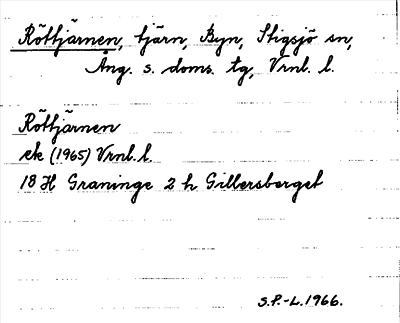 Röttjärnen, tjärn, Byn, Stigsjö sn,
Ång. s. doms. tg, Vrnl. l.
Röttjärnen
ek (1965) Vrnl. l.
18 H Graninge 2 h Gillersberget
S.P.-L. 1966.